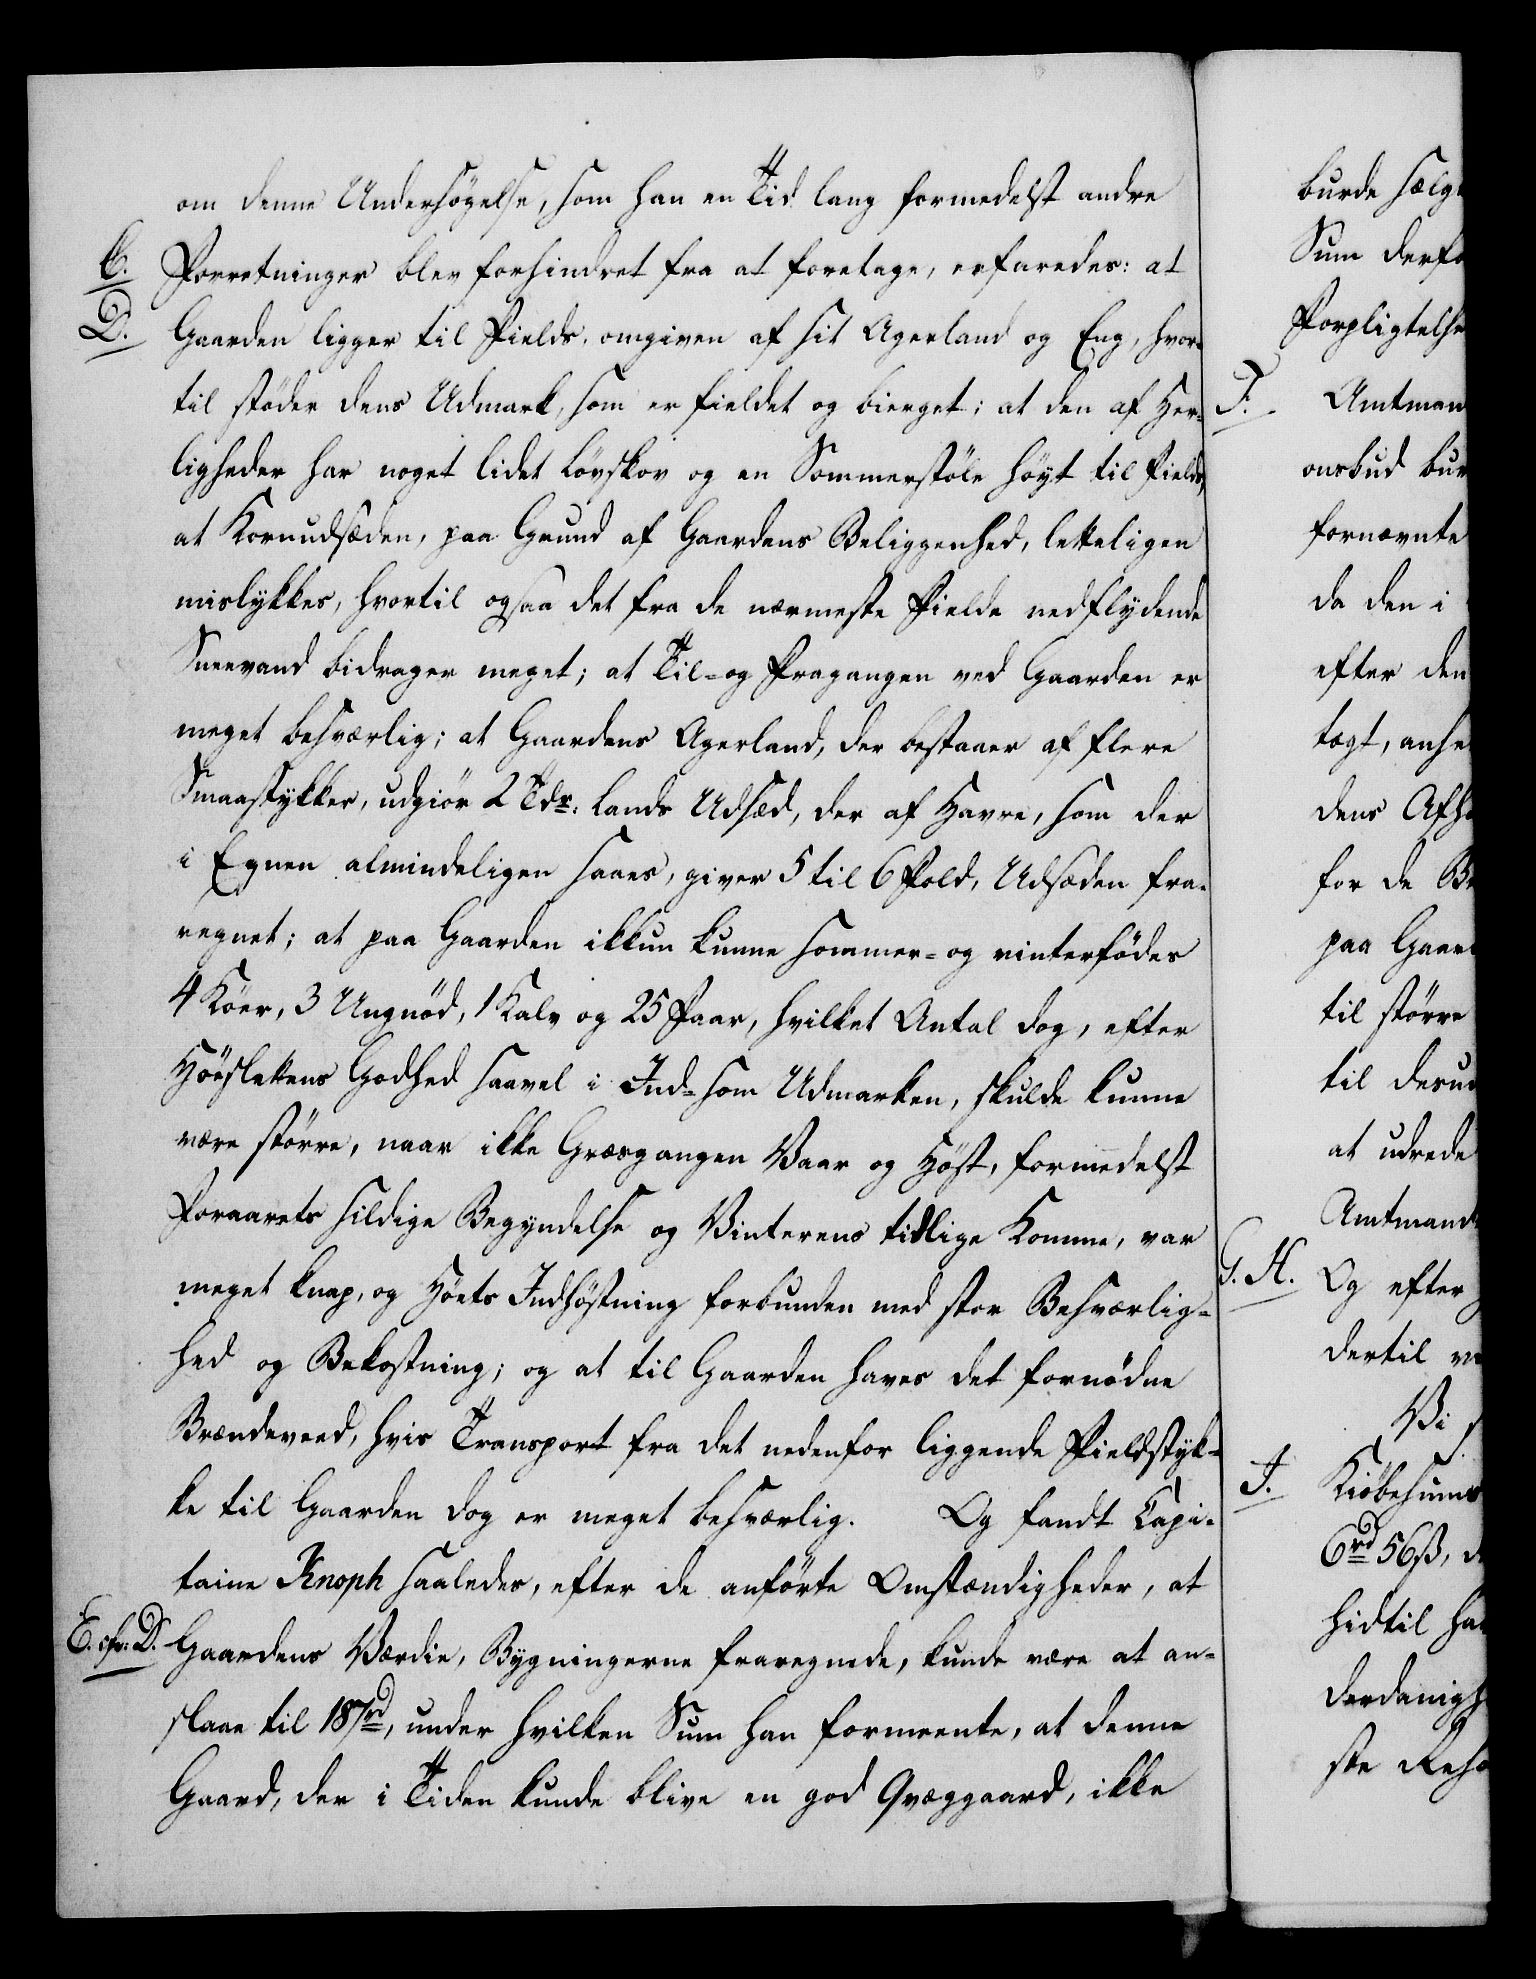 om denne Undersøgelse, som han en Tid lang formedelst andre
C. Forretninger blev forhindret fra at foretage, erfaredes: at
D. Gaarden ligger til Fields, omgiven af sit Agerland og Eng, hvor-
til støder dens Udmark, som er fieldet og bierget; at den af Her-
ligheder har noget lidet Løvskov og en Sommerstøle høyt til Fields,
at Kornudsæden, paa Grund af Gaardens Beliggenhed, letteligen
mislykkes, hvortil ogsaa det fra de nærmeste Fielde nedflydende
Sneevand bidrager meget; at Til- og Fragangen ved Gaarden er
meget besværlig; at Gaardens Agerland, der bestaaer af flere
Smaastykker, udgiør 2 Tdr: Lands Udsæd, der af Havre, som der
i Egnen almindeligen saaes, giver 5 til 6 Fold, Udsæden fra-
regnet; at paa Gaarden ikkun kunne sommer- og vinterfødes
4 Køer, 3 Ungnød, 1 Kalv og 25 Faar, hvilket Antal dog, efter
Høeslettens Godhed saavel i Ind- som Udmarken, skulde kunne
være større, naar ikke Græsgangen Vaar og Høst, formedelst
Foraarets sildige Begyndelse og Vinterens tidlige Komme, var
meget knap, og Høets Indhøstning forbunden med stor Besværlig-
hed og Bekostning; og at til Gaarden haves det fornødne
Brændeveed, hvis Transport fra det nedenfor liggende Fieldstyk-
ke til Gaarden dog er meget besværlig. Og fandt Capi-
taine Knoph saaledes, efter de anførte Omstændigheder, at
E. cfr: D. Gaardens Værdie, Bygningerne fraregnede, kunde være at an-
slaae til 187 rd, under hvilken Sum han formeente, at denne
Gaard, der i Tiden kunde blive en god Qvæggaard, ikke
burde sælg
Sum derfo
Forpligtelse
F. Amtman
onsbud bur
fornævnte
da den i
efter den
togt, anse
dens Afh
for de Br
paa Gaar
til større
til desu
at udrede
Amtmand
G. H. Og efter
dertil
Vi
I. Kiøbesums
6 rd 56 ß, d
hidtil ha
derdanigh
ste Reso